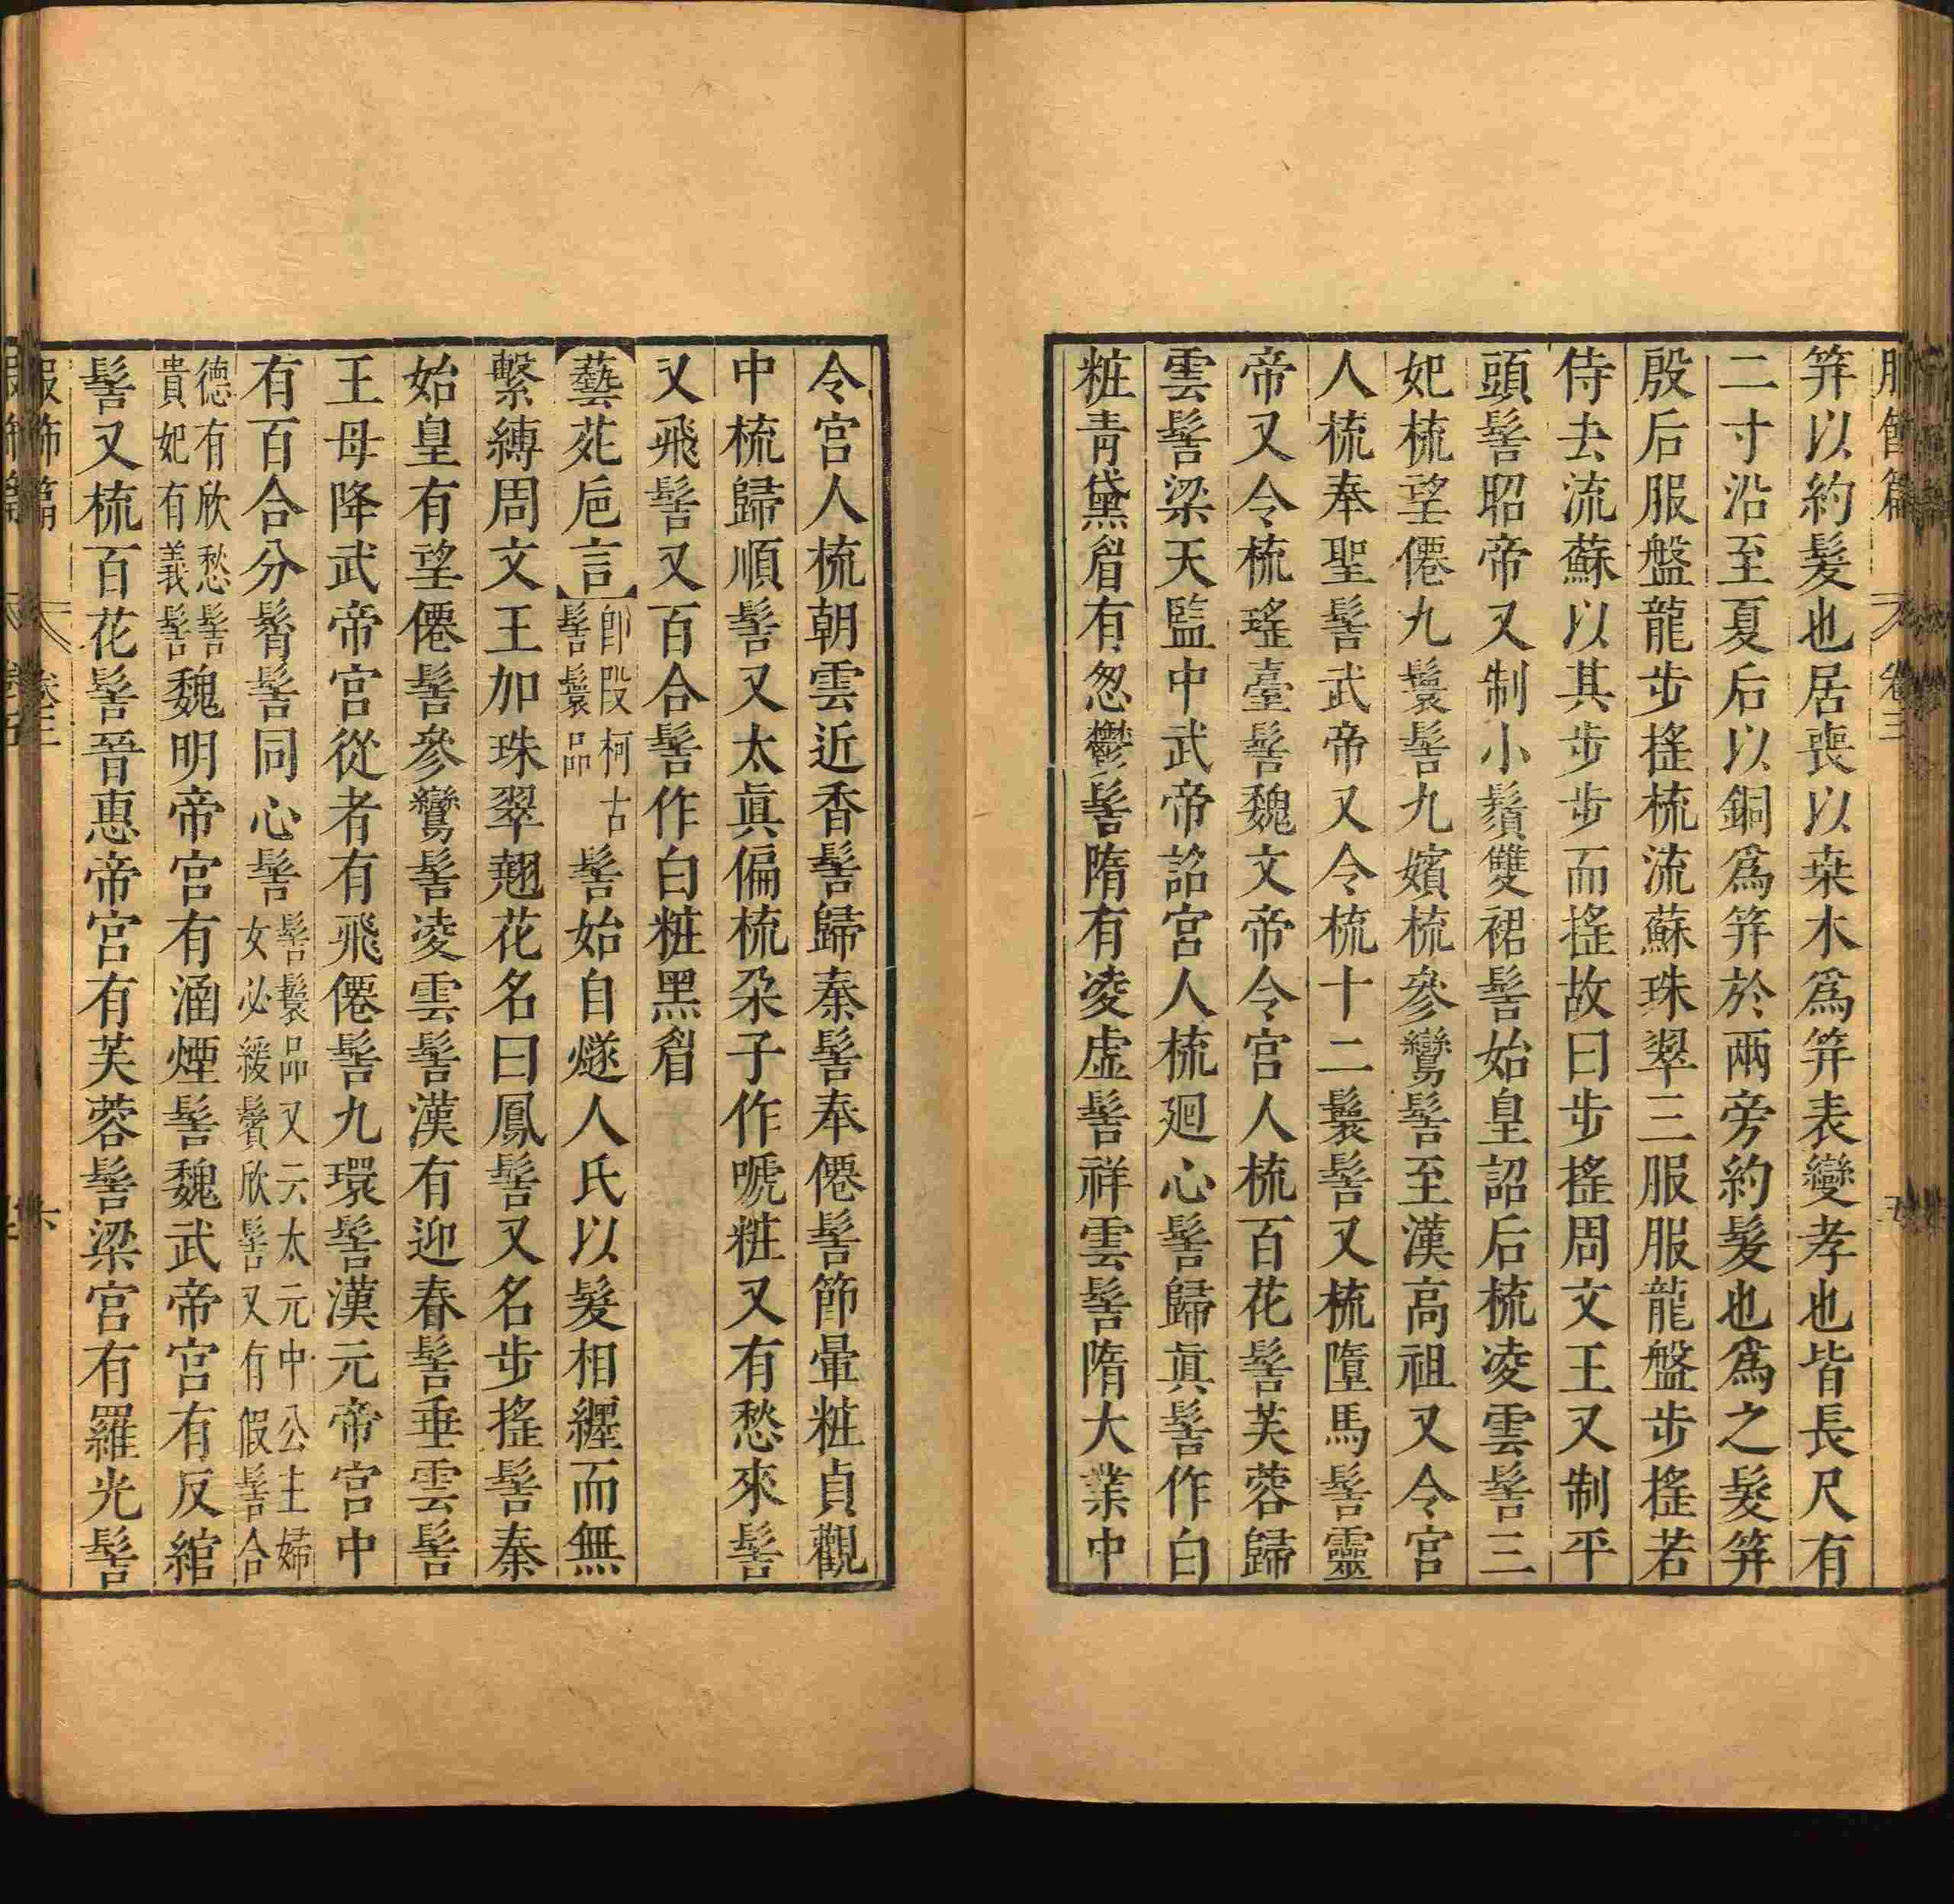 服篇 卷三
笄以約髮也居喪以桒木爲笄表變孝也皆長尺有
二寸沿至夏后以銅爲笄於兩旁約髮也爲之髮笄
殷后服盤龍步搖梳流蘇珠翠三服服龍盤步搖若
侍去流蘇以其步步而搖故曰步搖周文王又制平
頭髻昭帝又制小鬚雙裙髻始皇詔后梳凌雲髻三
妃梳望僊九鬟髻九嬪梳參鸞髻至漢高祖又令宮
人梳奉聖髻武帝又令梳十二鬟髻又梳墮馬髻靈
帝又令梳瑤臺髻魏文帝令宮人梳百花髻芙蓉歸
雲髻梁天監中武帝詔宮人梳廻心髻歸眞髻作白
粧青黛眉有怱鬱髻隋有凌虛髻祥雲髻隋大業中
令宮人梳朝雲近香髻歸秦髻奉僊髻節暈粧貞觀
中梳歸順髻又太眞偏梳朶子作啼粧又有愁來髻
又飛髻又百合髻作白粧黑眉
【藝苑卮言】卽段柯古髻鬟品 髻始自燧人氏以髮相纒而無
繫縛周文王加珠翠翹花名曰鳳髻又名步搖髻秦
始皇有望僊髻參鸞髻凌雲髻漢有迎春髻垂雲髻
王母降武帝宮從者有飛僊髻九環髻漢元帝宮中
有百合分髾髻同心髻 髻鬟品又云太元中公主婦女必緩鬢欣髻又有假髻合
德有欣愁髻貴妃有義髻 魏明帝宮有涵煙髻魏武帝宮有反綰
髻又梳百花髻晉惠帝宮有芙蓉髻梁宮有羅光髻
服飾篇 卷三 六